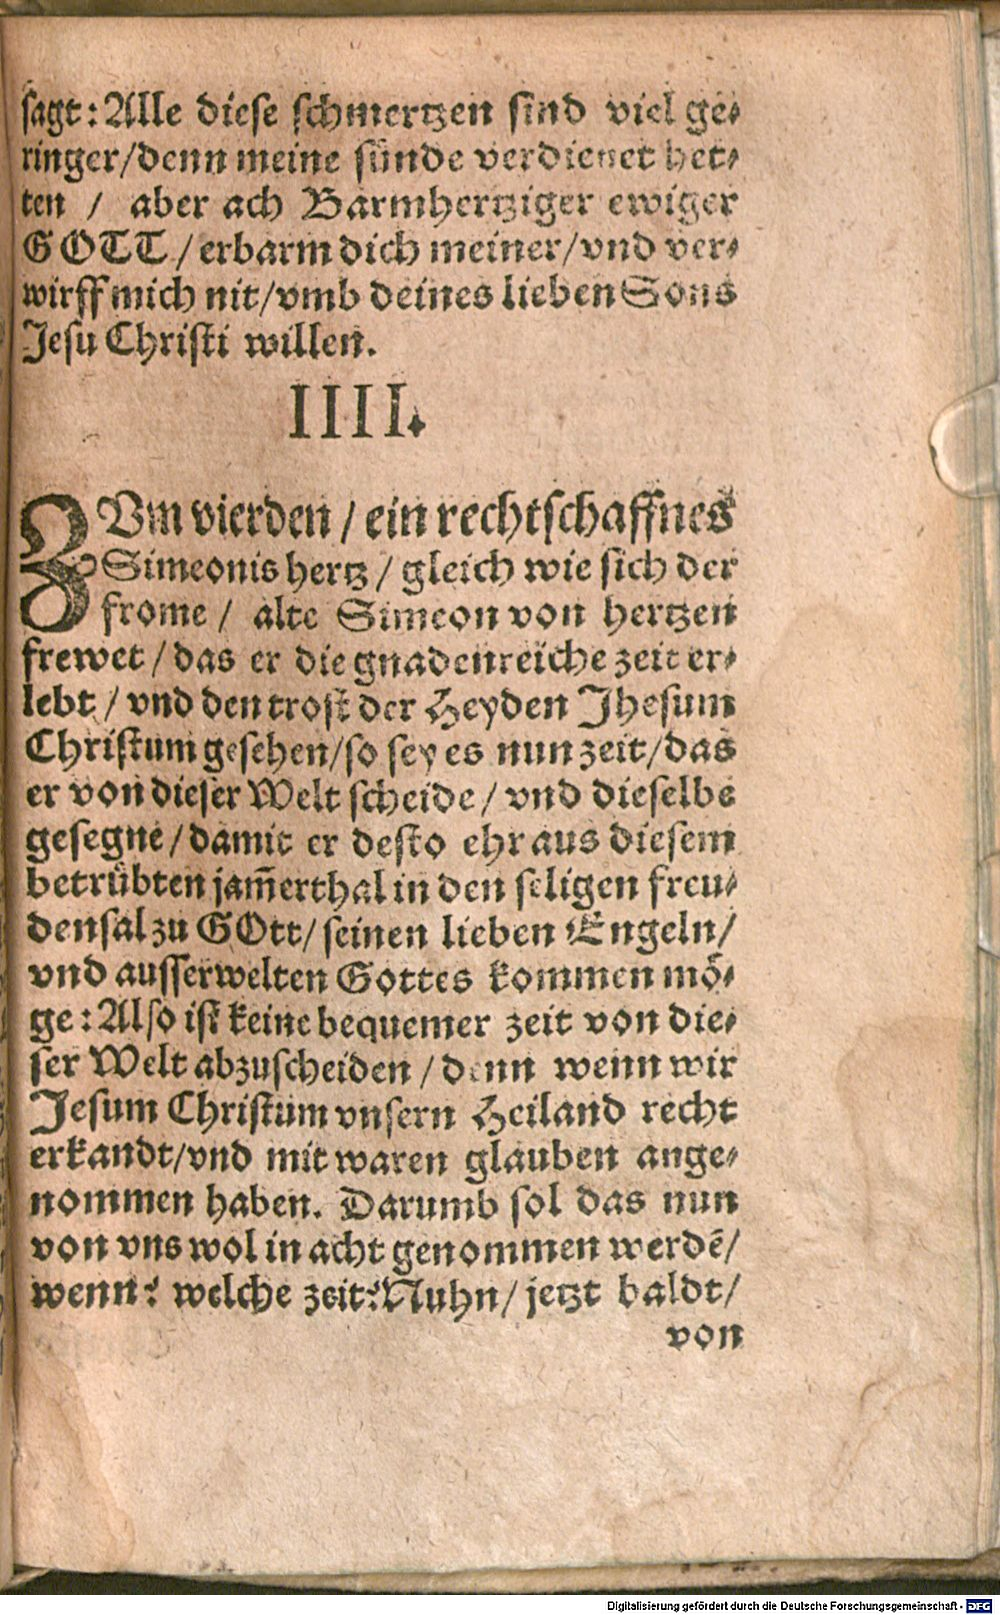 sagt: Alle diese schmertzen sind viel ge-
ringer/denn meine sünde verdienet het-
ten / aber ach Barmhertziger ewiger
GOTT/erbarm dich meiner/vnd ver-
wirff mich nit/vmb deines lieben Sons
Jesu Christi willen.
IIII.
ZVm vierden/ein rechtschaffnes
Simeonis hertz/gleich wie sich der
frome / alte Simeon von hertzen
frewet/das er die gnadenreiche zeit er-
lebt/vnd den trost der Heyden Jhesum
Christum gesehen/so sey es nun zeit/das
er von dieser Welt scheide/vnd dieselbe
gesegne/damit er desto ehr aus diesem
betrübten jam̃erthal in den seligen freu-
densal zu GOtt/seinen lieben Engeln/
vnd ausserwelten Gottes kommen mö-
ge: Also ist keine bequemer zeit von die-
ser Welt abzuscheiden/denn wenn wir
Jesum Christum vnsern Heiland recht
erkandt/vnd mit waren glauben ange-
nommen haben. Darumb sol das nun
von vns wol in acht genommen werdē/
wenn? welche zeit? Nuhn/jetzt baldt/
von
Digitalisierung gefördert durch die Deutsche Forschungsgemeinschaft - DFG